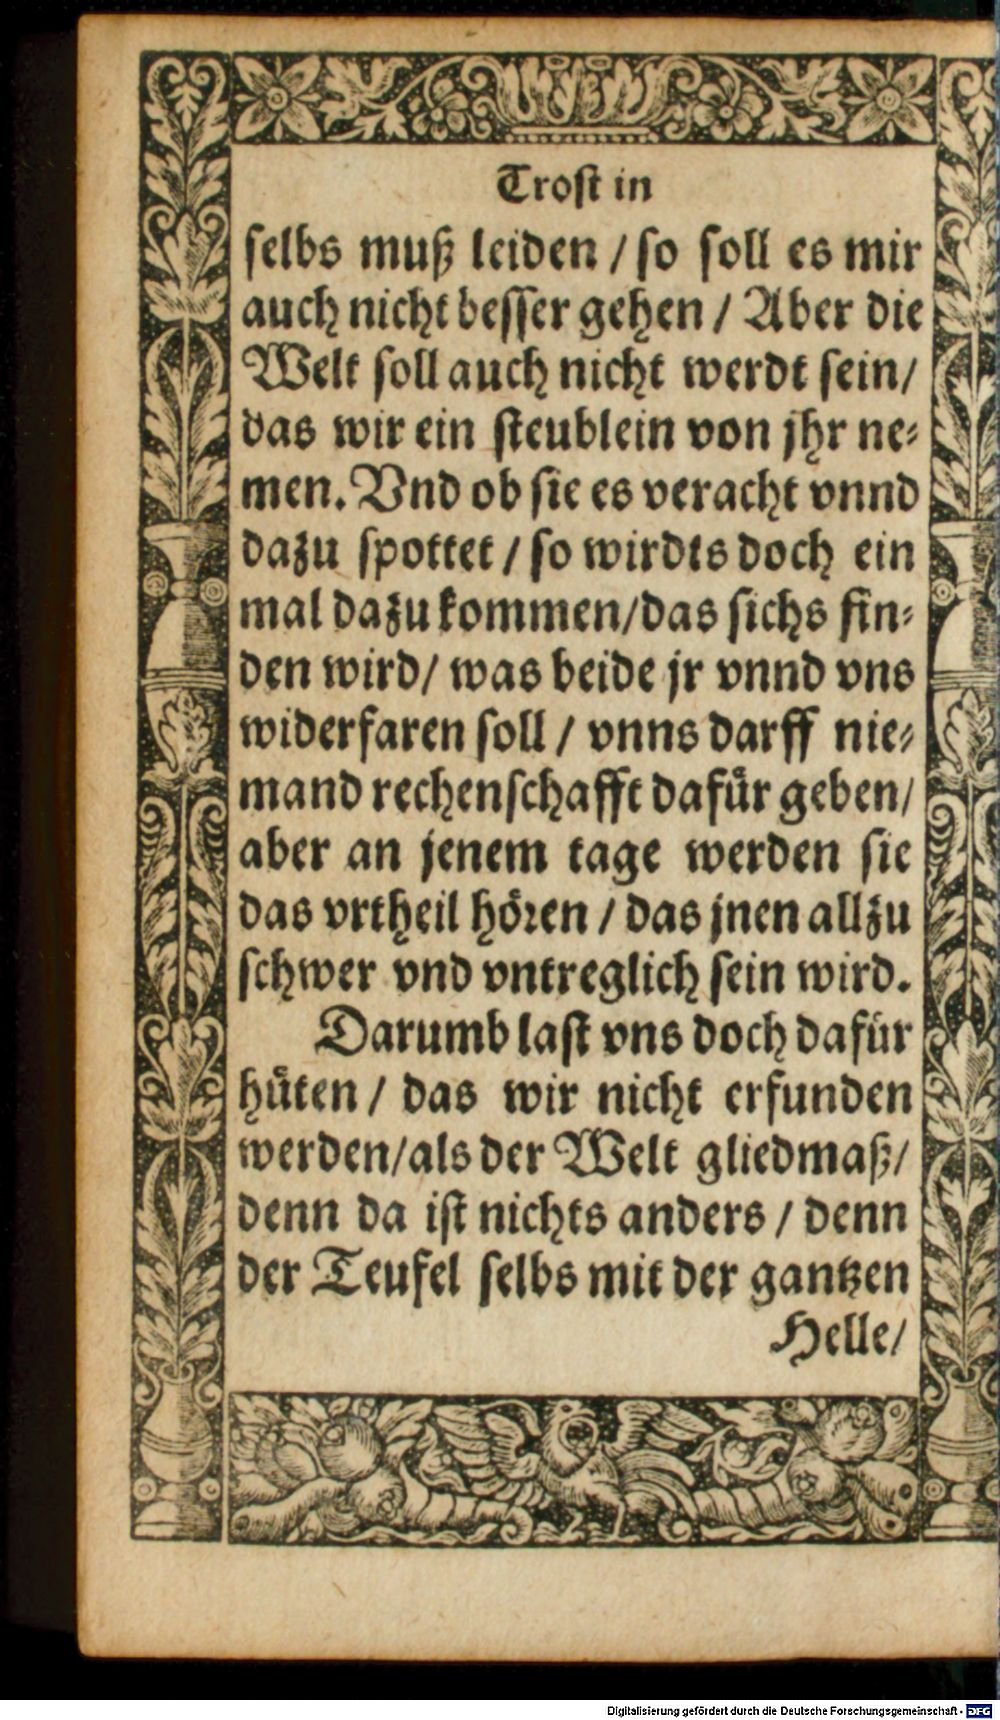 Trost in
selbs muß leiden / so soll es mir
auch nicht besser gehen / Aber die
Welt soll auch nicht werdt sein/
das wir ein steublein von jhr ne-
men. Vnd ob sie es veracht vnnd
dazu spottet / so wirdts doch ein
mal dazu kommen/das sichs fin-
den wird/ was beide jr vnnd vns
widerfaren soll / vnns darff nie-
mand rechenschafft dafür geben/
aber an jenem tage werden sie
das vrtheil hören / das jnen allzu
schwer vnd vntreglich sein wird.
Darumb last vns doch dafür
hüten / das wir nicht erfunden
werden/als der Welt gliedmaß/
denn da ist nichts anders / denn
der Teufel selbs mit der gantzen
Helle/
Digitalisierung gefördert durch die Deutsche Forschungsgemeinschaft - DFG